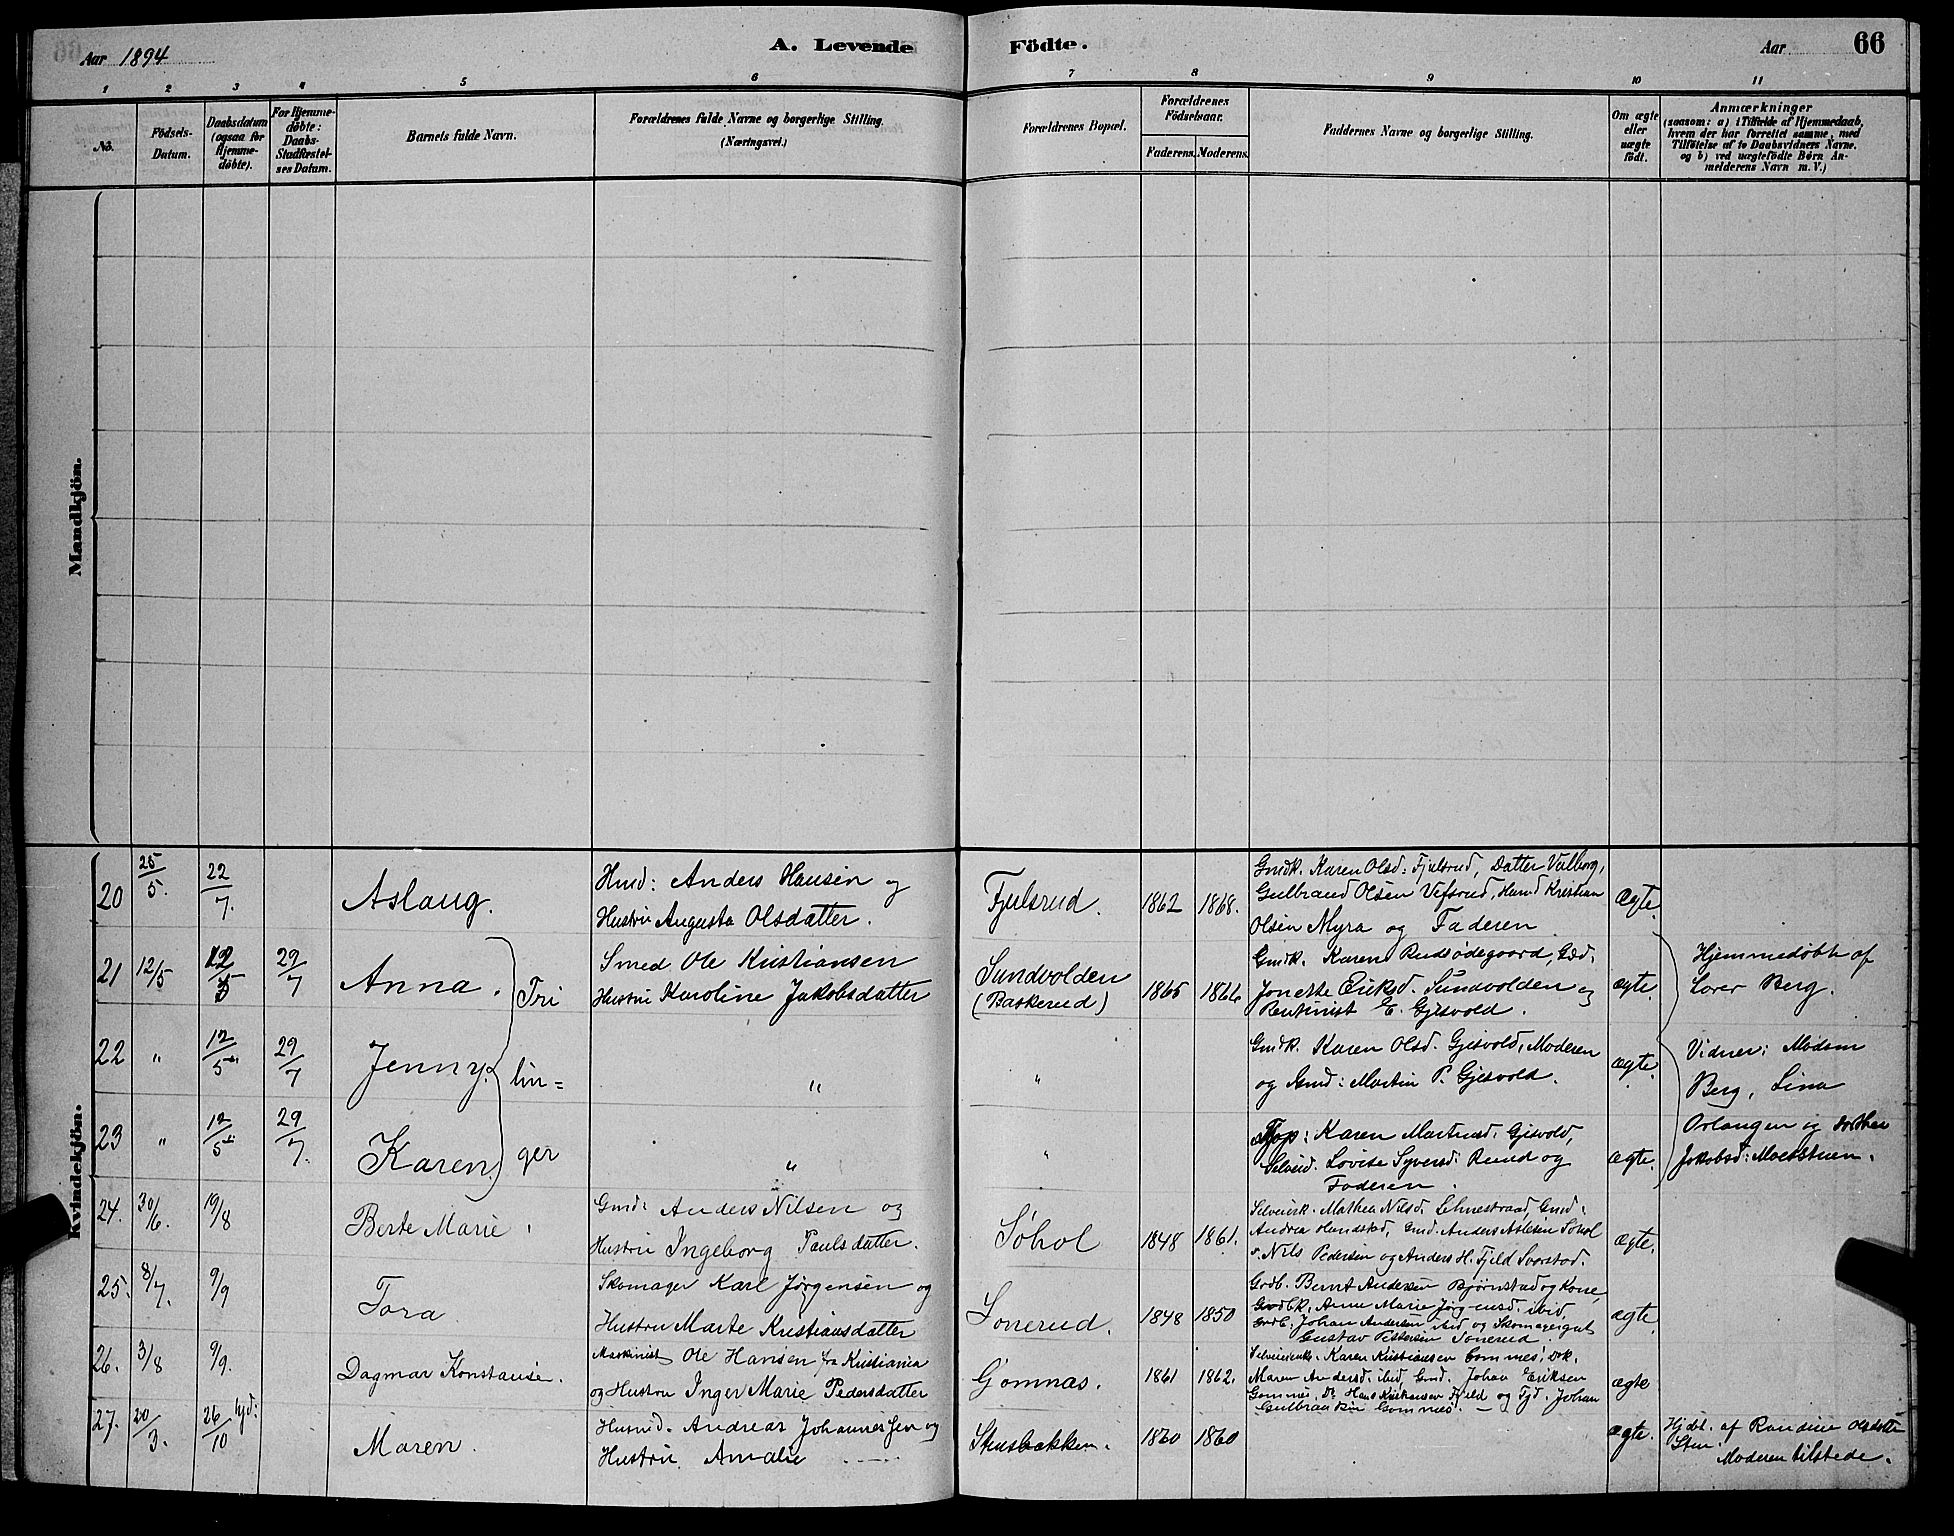 Aar 1894
A. Levende Födte.
Aar
66
1 2 3 4 5 6 7 8 9 10 11
No.
Födsels-
Datum.
Daabsdatum
(ogsaa for
Hjemme-
døbte).
For Hjemme-
døbte:
Daabs-
Stadfæstel-
ses Datum.
Barnets fulde Navn.
Forældrenes fulde Navne og borgerlige Stilling.
(Næringsvei.)
Forældrenes Bopæl.
Forældrenes
Födselsaar.
Faderens. Moderens.
Faddernes Navne og borgerlige Stilling.
Om ægte
eller
uægte
födt.
Anmærkninger
(saasom: a) i Tilfælde af Hjemmedaab,
hvem der har forrettet samme, med
Tilföielse af to Daabsvidners Navne.
og b) ved uægtefödte Børn An-
melderens Navn m. V.)
Mandkjön.
Kvindekjön.
20 25/5. 22/7. Aslaug.
Husd: Anders Hansen og
Hustru Augusta Olsdatter.
Fjulsrud. 1862 1868.
Gmdk. Karen Olsd: Fjulsrud, Datter Valborg,
Gulbrand Olsen Vefsrud, Husmd Kristian
Olsen Myra og Faderen
ægte.
21 12/5 12/5 29/7 Anna.
Smed Ole Kristiansen
Hustru Karoline Jakobsdatter
Sundvolden
(Baskerud)
1865 1866
Gmdk. Karen Rudsødegaard,
Jonette Eriksd. Sundvolden og
Rentenist E. Gjesvold.
ægte.
Tri
lin=
ger
Hjemmedøbt af
Lorer Berg.
Vidner: Madam
Berg, Lina
Orlangen og
Jakobsd: Moesstuen.
22 " 12/5 29/7 Jenny.
" "
Gmdk. Karen Olsd. Gjesvold, Moderen
og Gmd: Martin P. Gjesvold.
ægte.
23 " 12/5 29/7. Karen.
" "
Karen Martinsd. Gjesvold,
Lovise Syversd: Rund og
Faderen.
ægte.
24. 30/6. 19/8 Berte Marie.
Gmd: Anders Nilsen og
Hustru Ingeborg Paulsdatter.
Søhol 1848 1861.
Selveierk. Mathea Nilsd. Lehnestraad, Gmd.
Andrea Hundstad, Gmd. Anders Aslesen Søhol
Nils Pedersen og Anders H. Fjeld Svarstad.
ægte.
25. 8/7. 9/9 Tora
Skomager Karl Jørgensen og
Hustru Marte Kristiansdatter
Sonerud. 1848 1850
Grdb. Bernt Andersen Bjørnstad og Kone,
Grdbk. Anne Marie Jörgensd. ibid,
Grdb. Johan Andersen ibid og Skomagergut
Gustav Pettersen Sonerud.
ægte.
26. 3/8 9/9. Dagmar Konstanse.
Maskinist Ole Hansen fra Kristiania
og Hustru Inger Marie Pedersdatter
Gomnæs. 1861 1862.
Selveierenke. Karen Kristiansen Gomnes,
Maren Andersd. ibid, Gmd. Johan Eriksen
Gomnes, Do Hans Kristiansen Fjeld og Tjd. Johan
Gulbrandsen Gomnes.
ægte
27. 20/3. 26/10 Maren.
Husmd. Andreas Johannessen og
Hustru Amalie
Stusbakken. 1860 1860
ægte.
Hjdbt. af Randine Olsdatter
Stu.
Moderen tilstede.